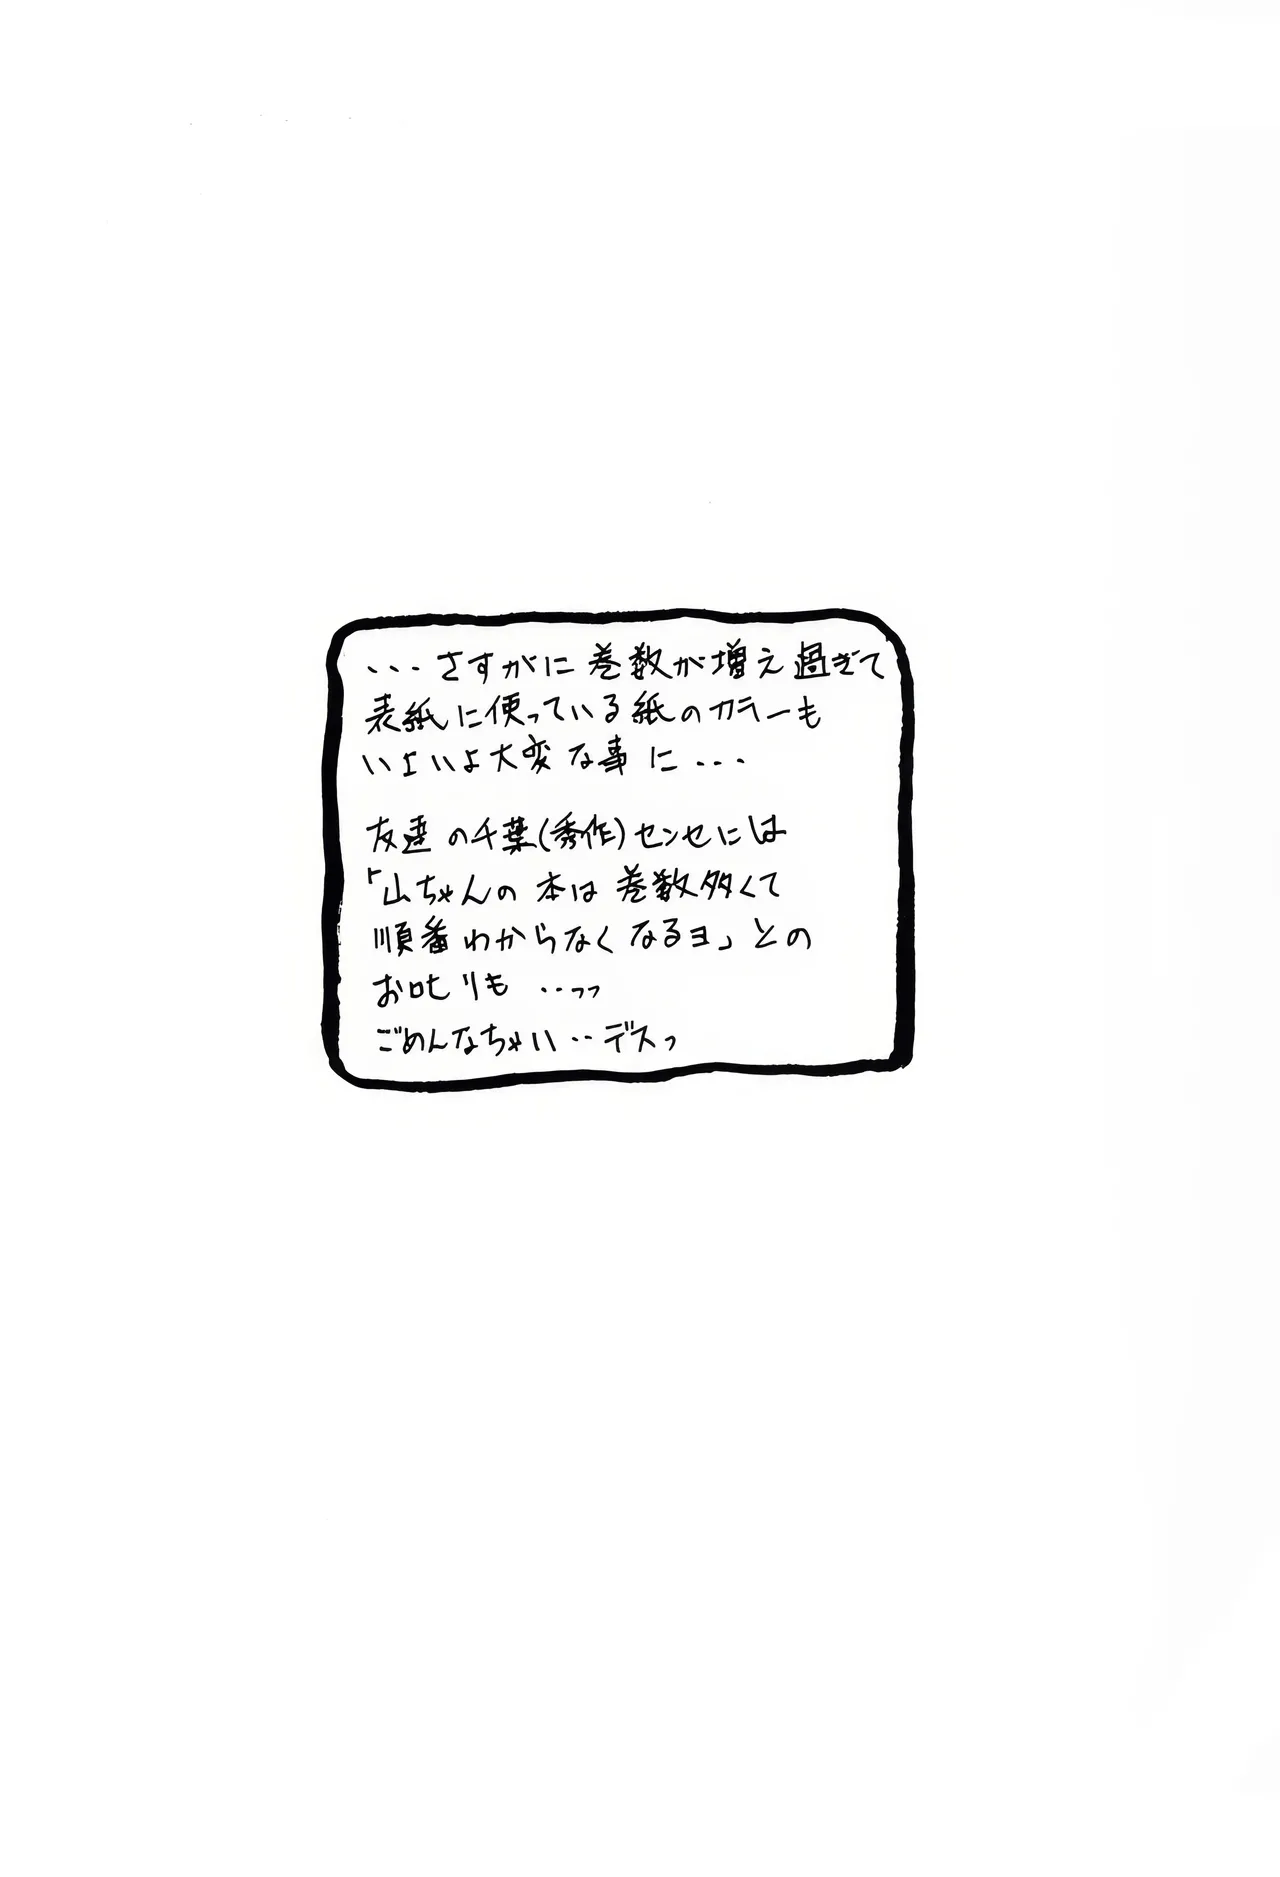 ・・・さすがに巻数が増え過ぎて
表紙に使っている紙のカラーも
いよいよ大変な事に・・・
友達の千葉(秀作)センセには
「山ちゃんの本は巻数多くて
順番わからなくなるヨ」との
お叱りも・・っっ
ごめんなちゃい・・デスっ